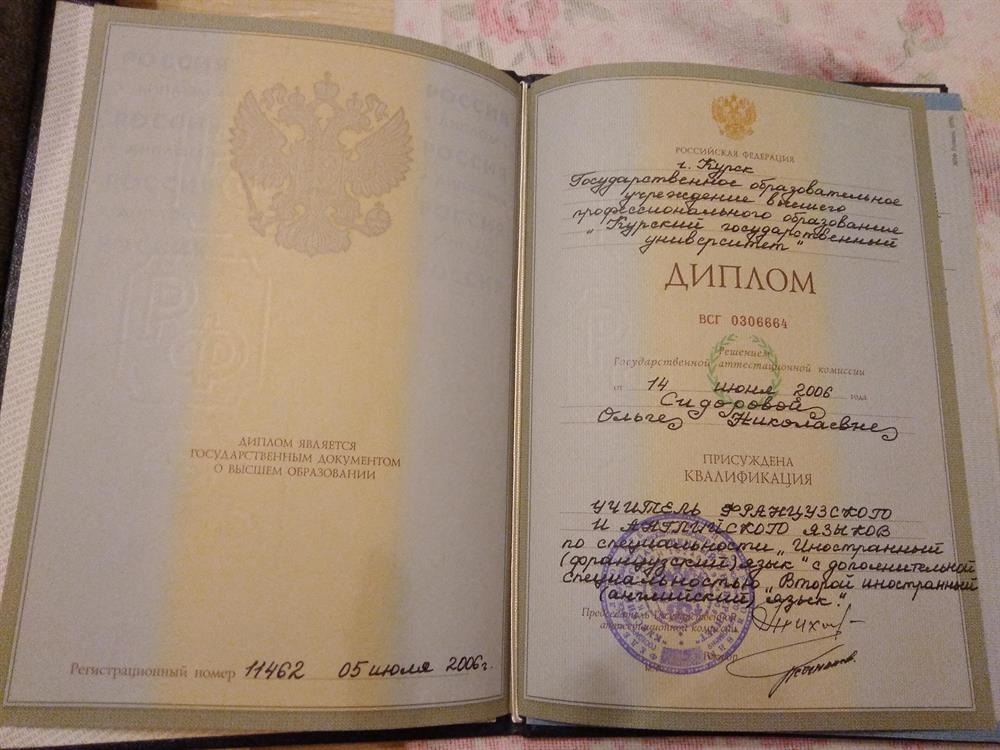 ДИПЛОМ ЯВЛЯЕТСЯ
ГОСУДАРСТВЕННЫМ ДОКУМЕНТОМ
О ВЫСШЕМ ОБРАЗОВАНИИ
Регистрационный номер 11462 05 июля 2006г.
РОССИЙСКАЯ ФЕДЕРАЦИЯ
г. Курск
Государственное образовательное
учреждение высшего
профессионального образования
"Курский государственный
университет"
ДИПЛОМ
ВСГ 0306664
Решением
Государственной аттестационной комиссии
от 14 июня 2006 года
Сидоровой
Ольге Николаевне
ПРИСУЖДЕНА
КВАЛИФИКАЦИЯ
УЧИТЕЛЬ ФРАНЦУЗСКОГО
И АНГЛИЙСКОГО ЯЗЫКОВ
по специальности „Иностранный
(французский) язык" с дополнительной
специальностью „Второй иностранный
(английский) язык".
Председатель Государственной
аттестационной комиссии
Ректор